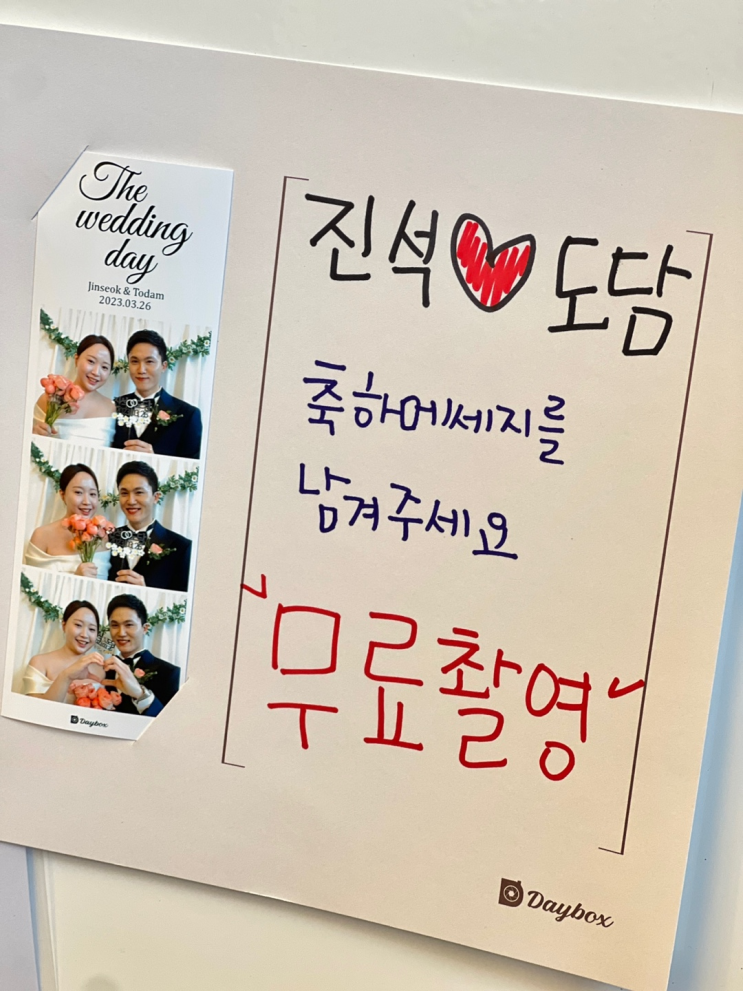 The
wedding
day
Jinseok & Todam
2023.03.26
Daybox
진석♥도담
축하메세지를
남겨주세요
무료촬영
Daybox